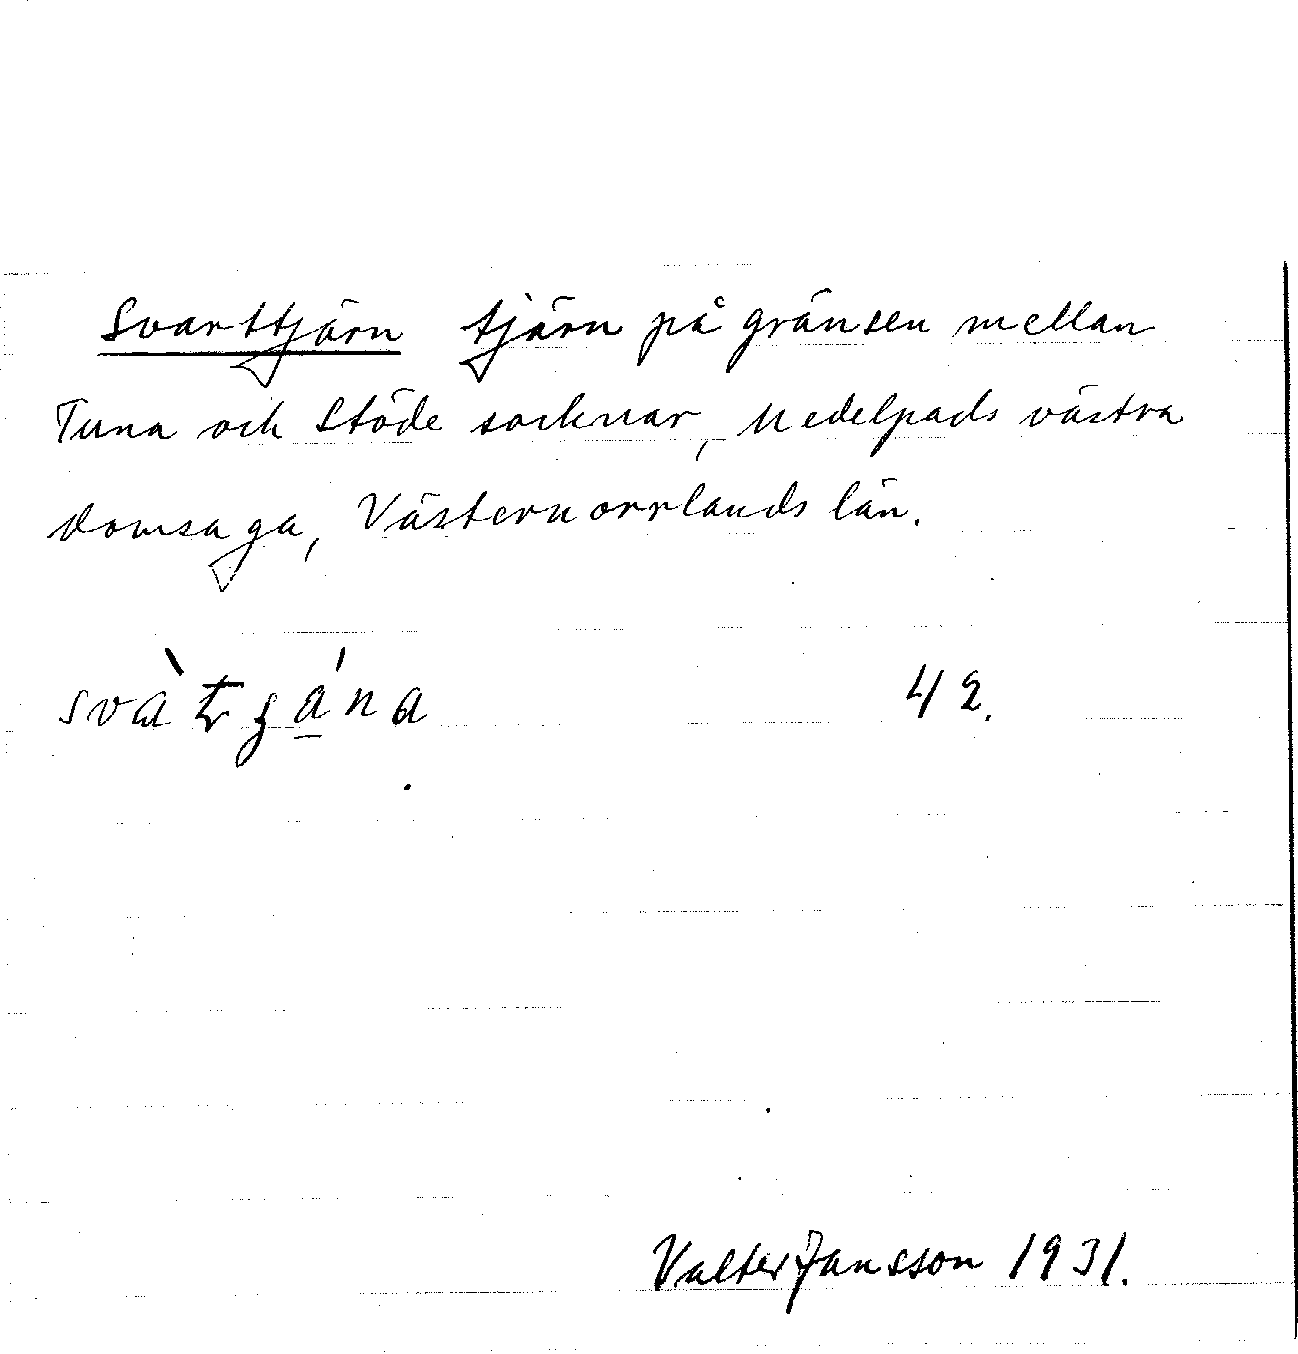 Svarttjärn tjärn på gränsen mellan
Tuna och Stöde socknar, Medelpads västra
domsaga, Västernorrlands län.
42.
Valter Jansson 1931.